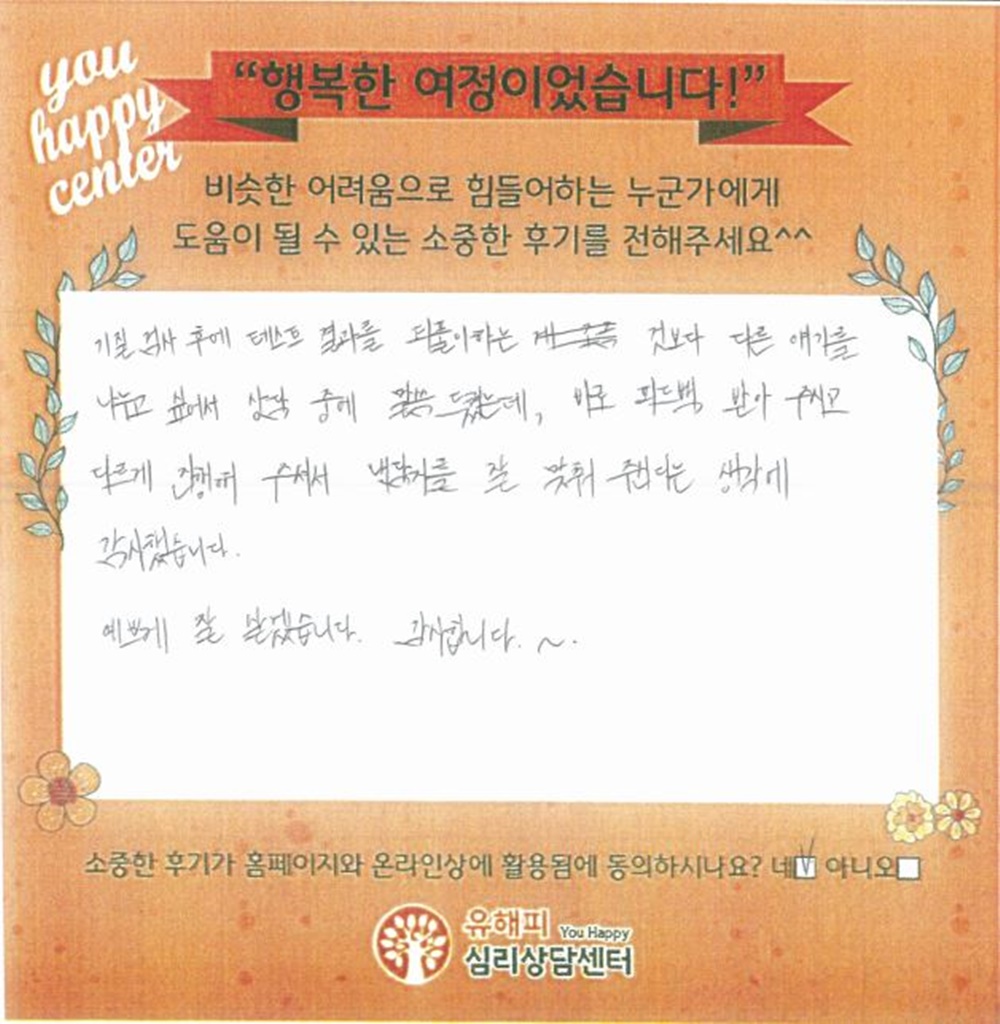 you
happy
center
“행복한 여정이었습니다!”
비슷한 어려움으로 힘들어하는 누군가에게
도움이 될 수 있는 소중한 후기를 전해주세요^^
기질 검사 후에 테스트 결과를 되풀이하는 것보다 다른 얘기를
나누고 싶어서 상담 중에 말씀 드렸는데, 바로 피드백 받아 주시고
다르게 진행해 주셔서 내담자를 잘 맞춰 주신다는 생각에
감사했습니다.
예쁘게 잘 살겠습니다. 감사합니다.~.
소중한 후기가 홈페이지와 온라인상에 활용됨에 동의하시나요? 네 아니오
유해피 You Happy
심리상담센터